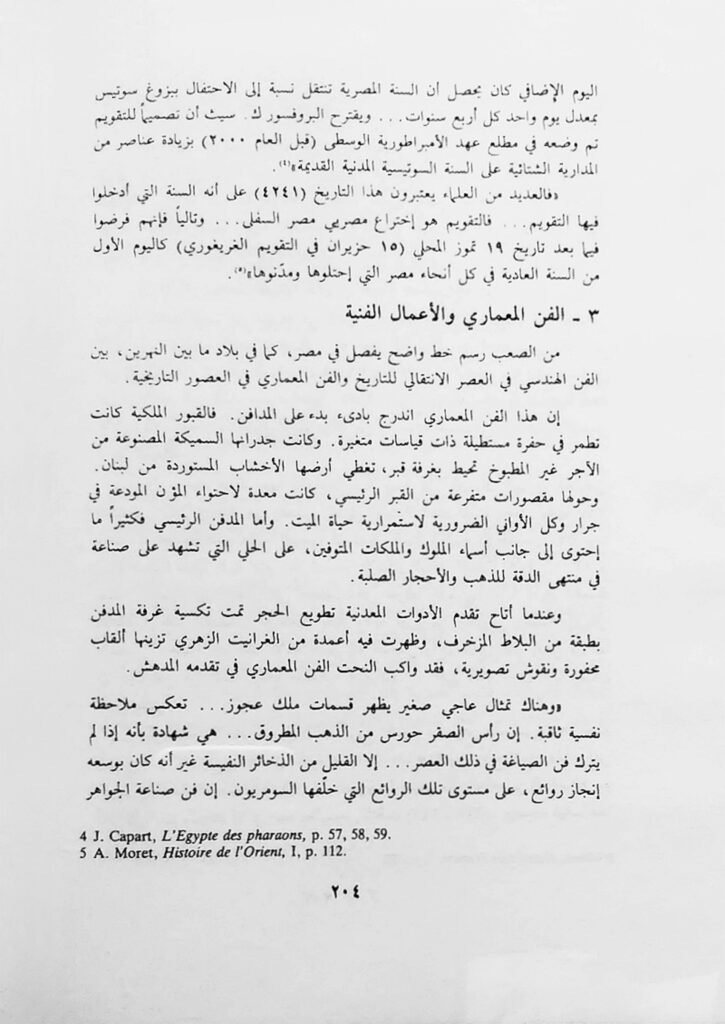 اليوم الإضافي كان يحصل أن السنة المصرية تنتقل نسبة إلى الاحتفال ببزوغ سوتيس
بمعدل يوم واحد كل أربع سنوات... ويقترح البروفسور ك. سيث أن تصميماً للتقويم
تم وضعه في مطلع عهد الأمبراطورية الوسطى (قبل العام ٢٠٠٠) بزيادة عناصر من
المدارية الشتائية على السنة السوتيسية المدنية القديمة»(٤).
«فالعديد من العلماء يعتبرون هذا التاريخ (٤٢٤١) على أنه السنة التي أدخلوا
فيها التقويم... فالتقويم هو إختراع مصريي مصر السفلى... وتالياً فإنهم فرضوا
فيما بعد تاريخ ١٩ تموز المحلي (١٥ حزيران في التقويم الغريغوري) كاليوم الأول
من السنة العادية في كل أنحاء مصر التي إحتلوها ومدّنوها»(٥).
٣ ـ الفن المعماري والأعمال الفنية
من الصعب رسم خط واضح يفصل في مصر، كما في بلاد ما بين النهرين، بين
الفن الهندسي في العصر الانتقالي للتاريخ والفن المعماري في العصور التاريخية.
إن هذا الفن المعماري اندرج بادىء بدء على المدافن. فالقبور الملكية كانت
تطمر في حفرة مستطيلة ذات قياسات متغيرة. وكانت جدرانها السميكة المصنوعة من
الآجر غير المطبوخ تحيط بغرفة قبر، تغطي أرضها الأخشاب المستوردة من لبنان.
وحولها مقصورات متفرعة من القبر الرئيسي، كانت معدة لاحتواء المؤن المودعة في
جرار وكل الأواني الضرورية لاستمرارية حياة الميت. وأما المدفن الرئيسي فكثيراً ما
إحتوى إلى جانب أسماء الملوك والملكات المتوفين، على الحلي التي تشهد على صناعة
في منتهى الدقة للذهب والأحجار الصلبة.
وعندما أتاح تقدم الأدوات المعدنية تطويع الحجر تمت تكسية غرفة المدفن
بطبقة من البلاط المزخرف، وظهرت فيه أعمدة من الغرانيت الزهري تزينها ألقاب
محفورة ونقوش تصويرية، فقد واكب النحت الفن المعماري في تقدمه المدهش.
«وهناك تمثال عاجي صغير يظهر قسمات ملك عجوز... تعكس ملاحظة
نفسية ثاقبة. إن رأس الصقر حورس من الذهب المطروق... هي شهادة بأنه إذا لم
يترك فن الصياغة في ذلك العصر... إلا القليل من الذخائر النفيسة غير أنه كان بوسعه
إنجاز روائع، على مستوى تلك الروائع التي خلّفها السومريون. إن فن صناعة الجواهر
4 J. Capart, L'Egypte des pharaons, p. 57, 58, 59.
5 A. Moret, Histoire de l'Orient, I, p. 112.
٢٠٤